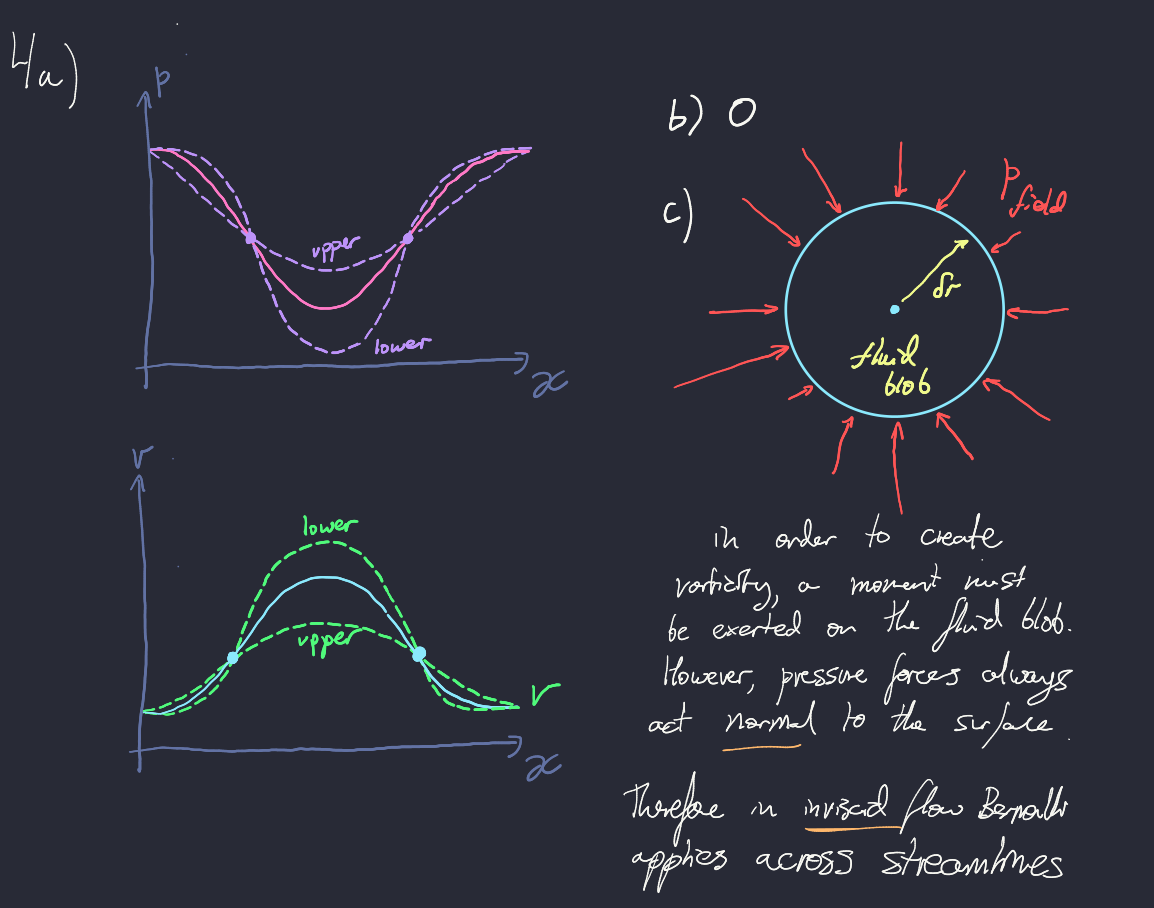 4a)
p
upper
lower
x
v
lower
upper
v
x
b) 0
c)
p field
δr
fluid
blob
in order to create
vorticity, a moment must
be exerted on the fluid blob.
However, pressure forces always
act normal to the surface.
Therefore in inviscid flow Bernoulli
applies across streamlines